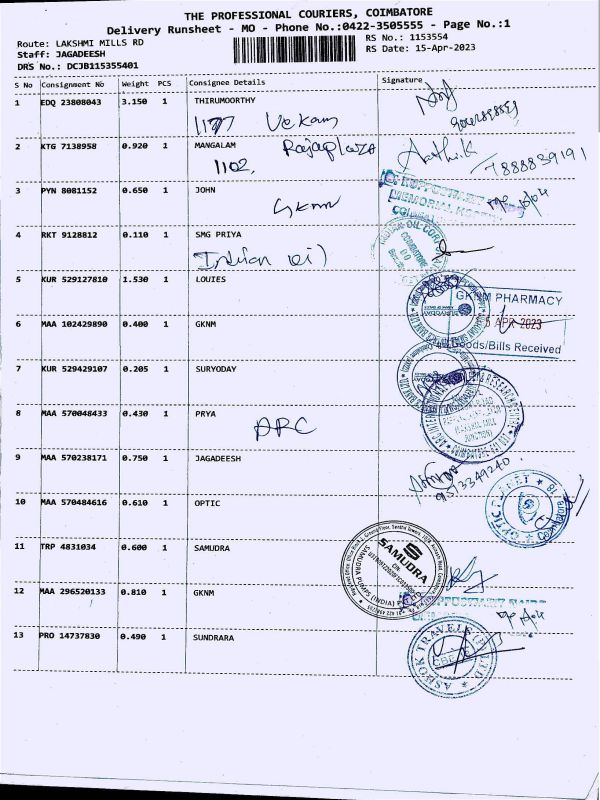 THE PROFESSIONAL COURIERS, COIMBATORE
Delivery Runsheet - MO - Phone No.:0422-3505555 - Page No.:1
Route: LAKSHMI MILLS RD
RS No.: 1153554
Staff: JAGADEESH
RS Date: 15-Apr-2023
DRS No.: DCJB115355401
S No Consignment No Weight PCS Consignee Details Signature
1 EDQ 23808043 3.150 1 THIRUMOORTHY
2 KTG 7138958 0.920 1 MANGALAM Rajaplaza
1102, Aarthi.K 7888839191
3 PYN 8081152 0.650 1 JOHN
GKNM
4 RKT 9128812 0.110 1 SMG PRIYA
Indian oil
5 KUR 529127810 1.530 1 LOUIES
GKNM PHARMACY
6 MAA 102429890 0.400 1 GKNM
5 APR 2023
Goods/Bills Received
7 KUR 529429107 0.205 1 SURYODAY
8 MAA 570048433 0.430 1 PRYA
ARC
9 MAA 570238171 0.750 1 JAGADEESH
9513349240
10 MAA 570484616 0.610 1 OPTIC
OPTIC PLANET
Coimbatore
11 TRP 4831034 0.600 1 SAMUDRA
SAMUDRA
12 MAA 296520133 0.810 1 GKNM
13 PRO 14737830 0.490 1 SUNDRARA
ASHOK TRAVELS
CBE